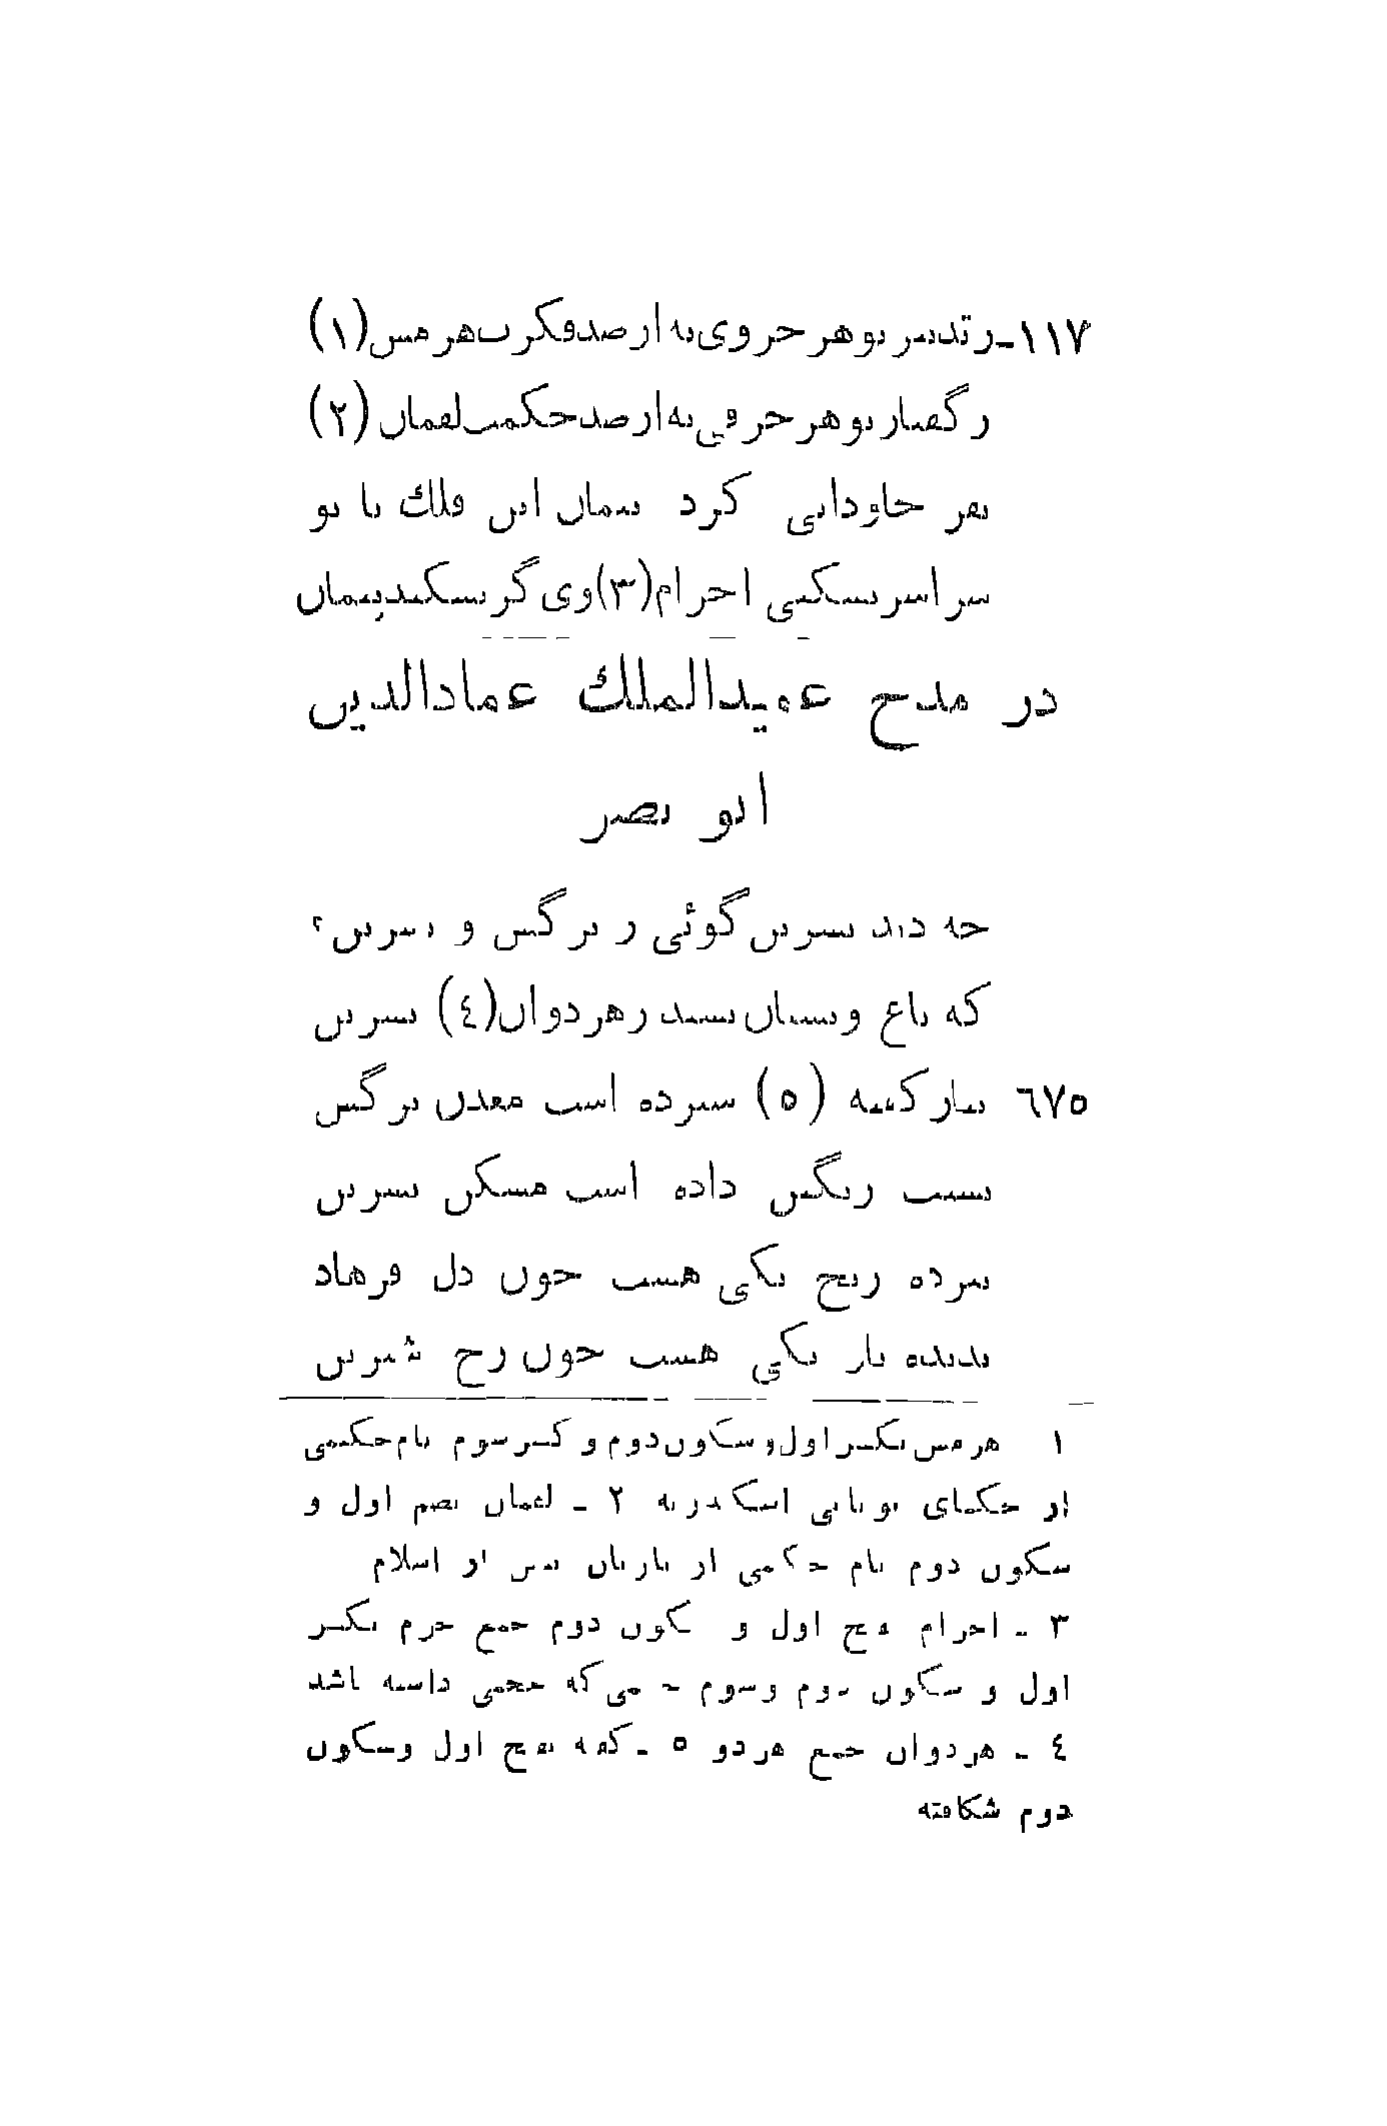 ١١٧ـ ز تدبیر تو هر جزوی به از صد فکرت هرمس (١)
ز گفتار تو هر حرفی به از صد حکمت لقمان (٢)
بفر جاودانی کرد پیمان این فلک با تو
سراسر بشکنی اجرام (٣) وی گر بشکند پیمان
در مدح عمیدالملک عمادالدین
ابو نصر
چه دید نسرین گوئی ز نرگس و نسرین ؟
که باغ و بستان بستد ز هردوان (٤) نسرین
٦٧٥ بنار کفته (٥) سپرده است معدن نرگس
بسیب رنگین داده است مسکن نسرین
ببرده رنج یکی هست چون دل فرهاد
بدیده بار یکی هست چون رخ شیرین
١ هرمس بکسر اول و سکون دوم و کسر سوم نام حکیمی
از حکمای یونانی اسکندریه ٢ ـ لقمان بضم اول و
سکون دوم نام حکیمی از تازیان پیش از اسلام
٣ ـ اجرام بفتح اول و سکون دوم جمع جرم بکسر
اول و سکون دوم و سوم جسمی که حجمی داشته باشد
٤ ـ هردوان جمع هردو ٥ ـ کفته بفتح اول و سکون
دوم شکافته